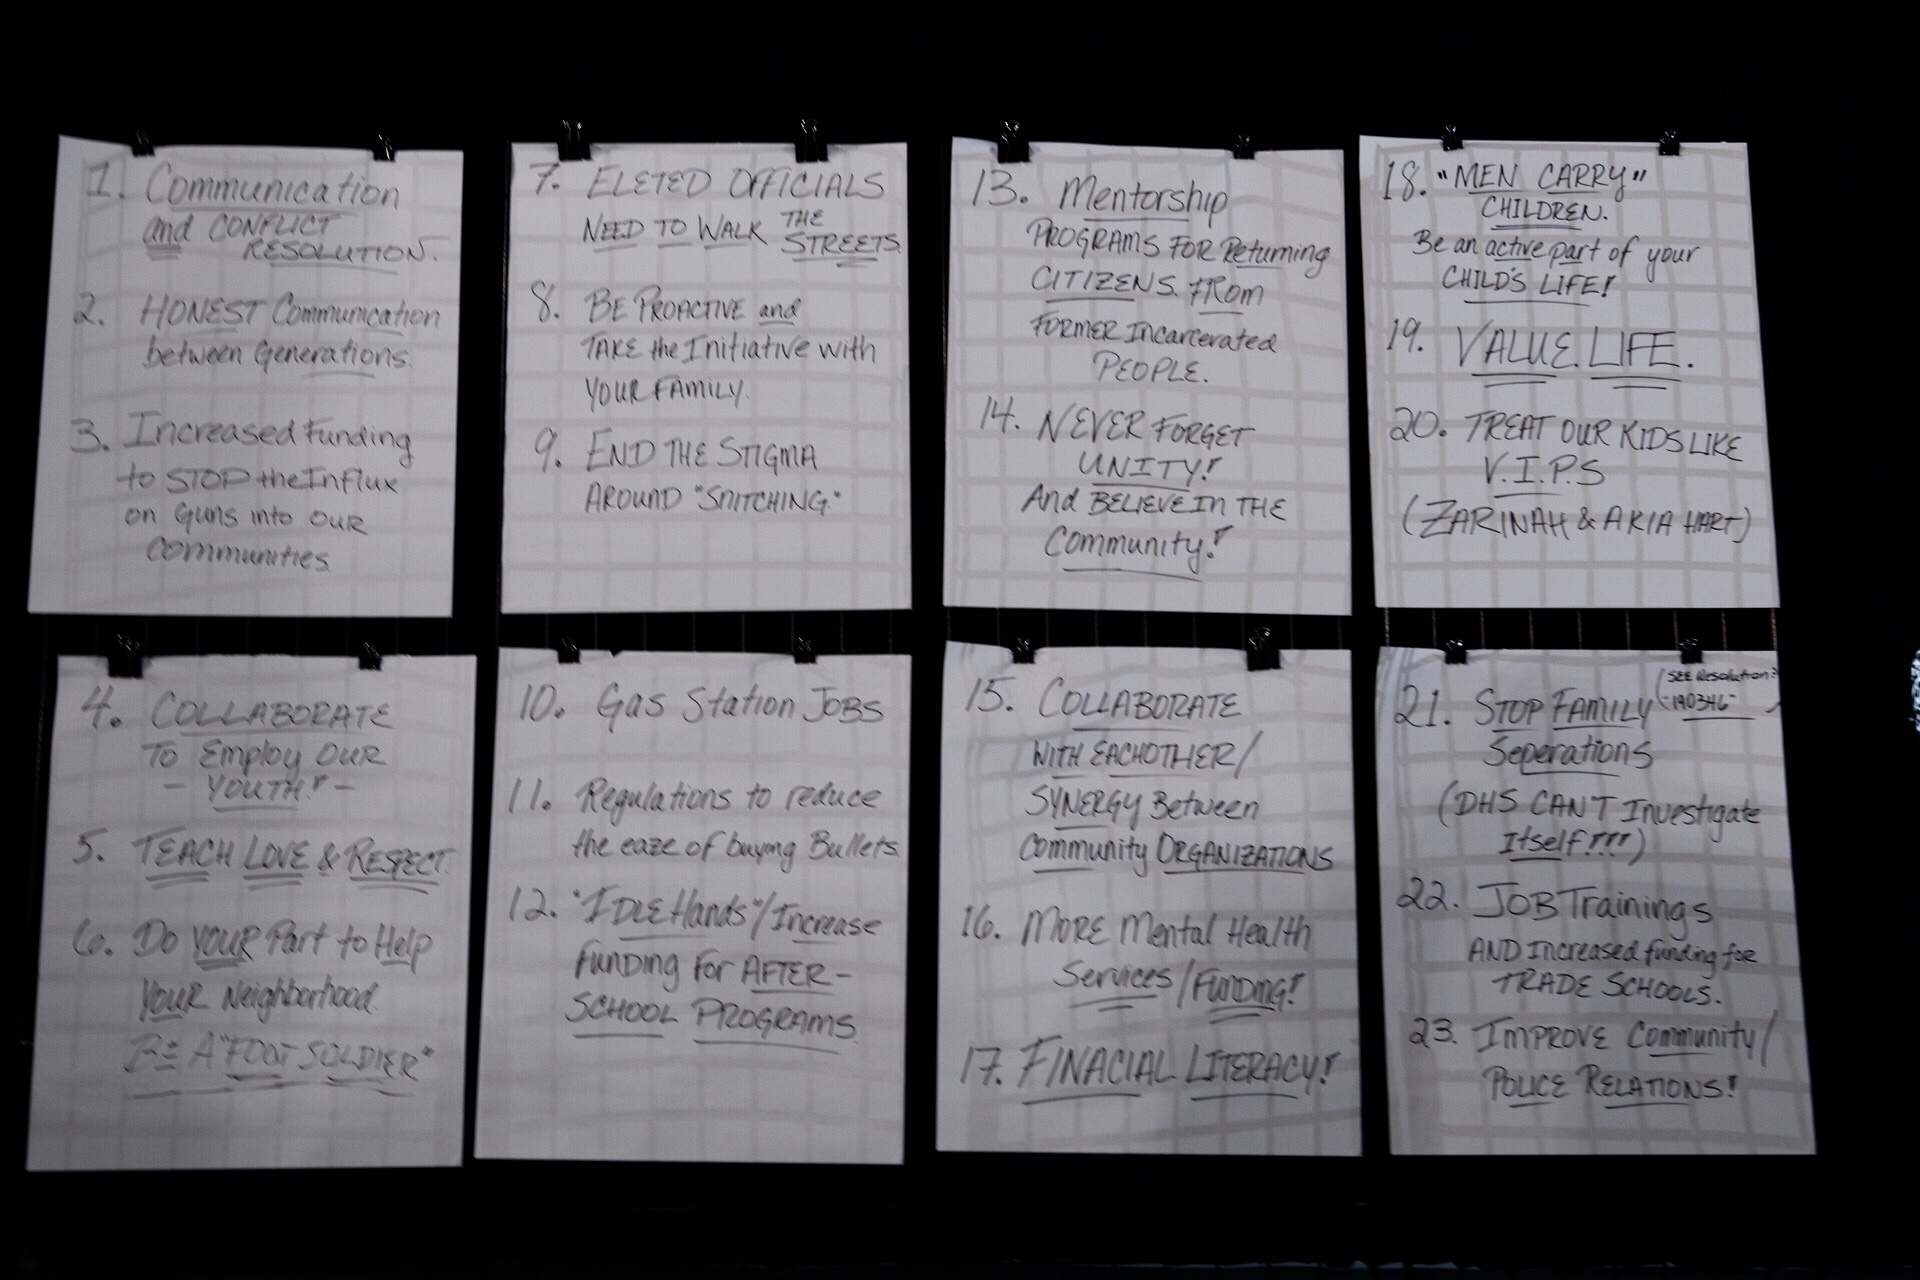 1. Communication
and CONFLICT
RESOLUTION.
2. HONEST Communication
between Generations.
3. Increased Funding
to STOP the Influx
on Guns into OUR
Communities
4. COLLABORATE
To Employ OUR
- YOUTH! -
5. TEACH LOVE & RESPECT.
6. Do YOUR Part to Help
YOUR Neighborhood.
BE A "FOOT SOLDIER"
7. ELETED OFFICIALS
NEED TO WALK THE
STREETS.
8. BE PROACTIVE and
TAKE the Initiative with
YOUR FAMILY.
9. END THE STIGMA
AROUND "SNITCHING."
10. Gas Station JOBS
11. Regulations to reduce
the eaze of buying Bullets
12. "IDLE Hands"/Increase
Funding For AFTER-
SCHOOL PROGRAMS.
13. Mentorship
PROGRAMS FOR Returning
CITIZENS. FROM
FORMER Incarcerated
PEOPLE.
14. NEVER FORGET
UNITY!
And BELIEVE IN THE
Community!
15. COLLABORATE
WITH EACHOTHER/
SYNERGY Between
Community ORGANIZATIONS
16. MORE Mental Health
Services/FUNDING!
17. FINACIAL LITERACY!
18. "MEN CARRY"
CHILDREN.
Be an active part of your
CHILD'S LIFE!
19. VALUE LIFE.
20. TREAT OUR KIDS LIKE
V.I.P.S
(ZARINAH & AKIA HART)
21. STOP FAMILY (SEE Resolution:
-190346-)
Seperations
(DHS CAN'T Investigate
Itself!!!)
22. JOB Trainings
AND Increased funding for
TRADE SCHOOLS.
23. IMPROVE Community/
POLICE RELATIONS!